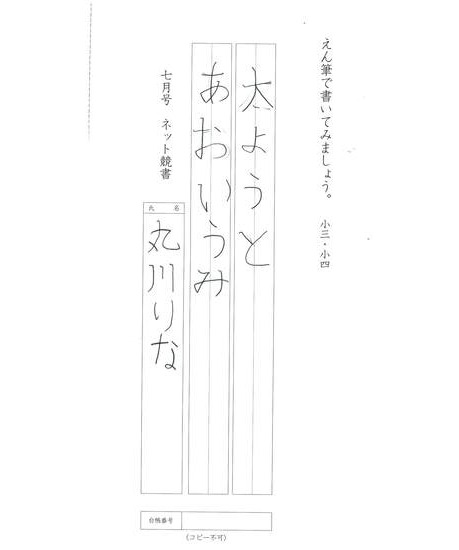 えん筆で書いてみましょう。 小三・小四
太ようと
あおいうみ
七月号 ネット競書
氏 名
丸川りな
台帳番号
(コピー不可)